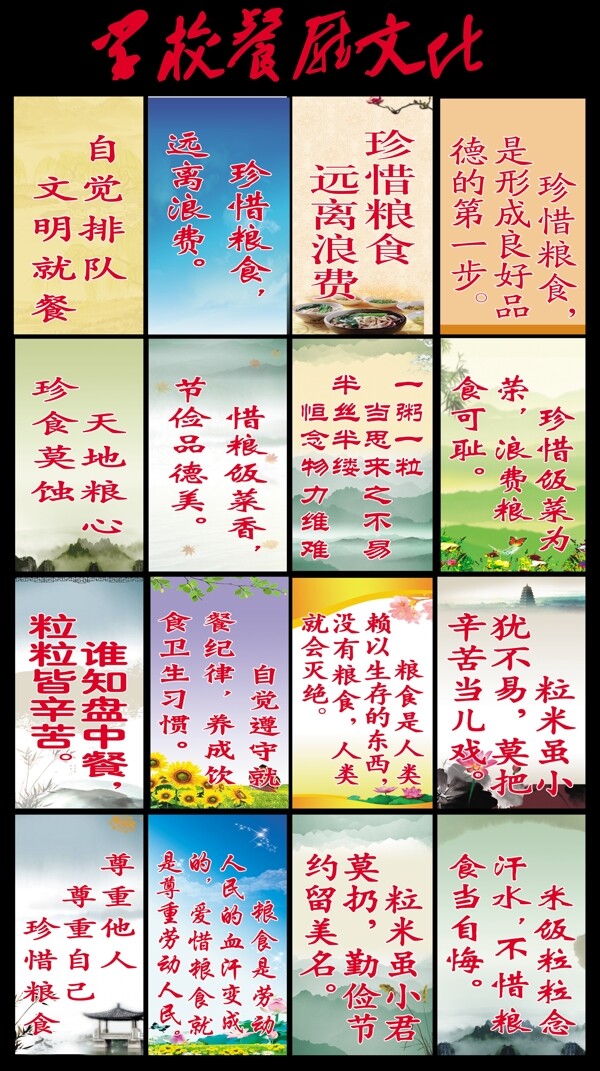 学校餐厨文化
自觉排队
文明就餐
珍惜粮食，
远离浪费。
珍惜粮食
远离浪费
珍惜粮食，
是形成良好品
德的第一步。
天地粮心
珍食莫蚀
惜粮饭菜香，
节俭品德美。
一粥一粒
当思来之不易
半丝半缕
恒念物力维难
珍惜饭菜为
荣，浪费粮
食可耻。
谁知盘中餐，
粒粒皆辛苦。
自觉遵守就
餐纪律，养成饮
食卫生习惯。
粮食是人类
赖以生存的东西，
没有粮食，人类
就会灭绝。
粒米虽小
犹不易，莫把
辛苦当儿戏。
尊重他人
尊重自己
珍惜粮食
粮食是劳动
人民的血汗变成
的，爱惜粮食就
是尊重劳动人民。
粒米虽小君
莫扔，勤俭节
约留美名。
米饭粒粒念
汗水，不惜粮
食当自悔。